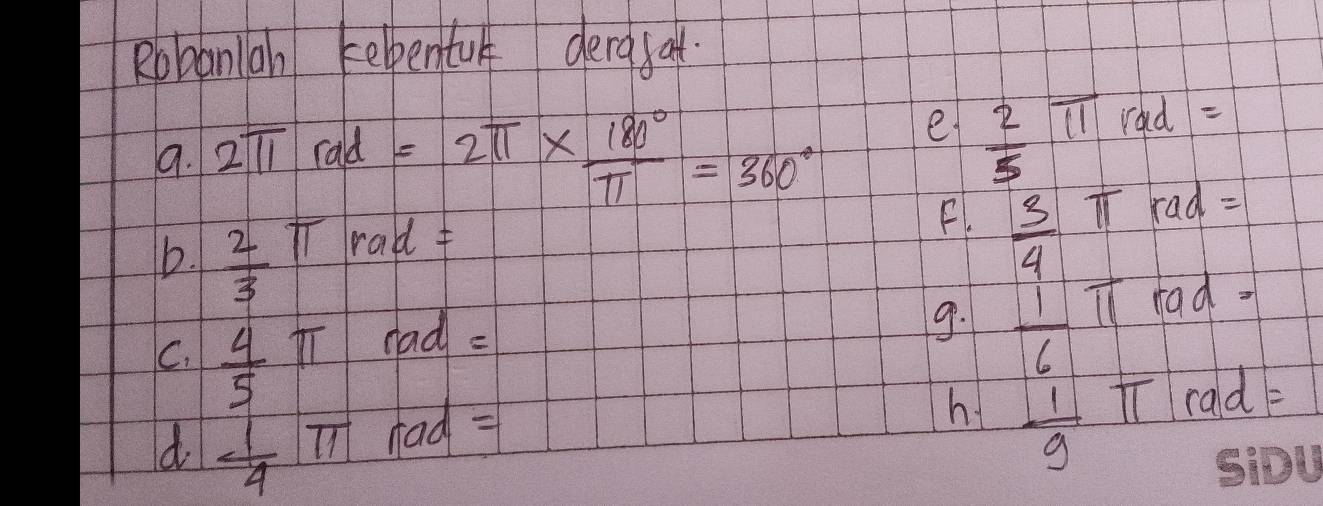 Robanlah kebentuk derajat.
a. 2π rad = 2π × 180°/π = 360°
b. 2/3 π rad =
c. 4/5 π rad =
d. 1/4 π rad =
e. 2/5 π rad =
F. 3/4 π rad =
g. 1/6 π rad =
h. 1/9 π rad =
SiDU